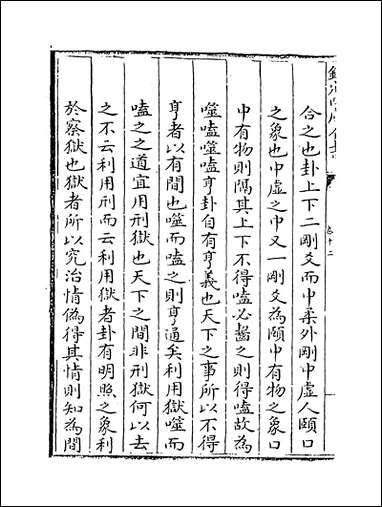 卷十二
合之也卦上下二剛爻而中柔外剛中虛人頤口
之象也中虛之中又一剛爻為頤中有物之象口
中有物則隔其上下不得嗑必齧之則得嗑故為
噬嗑噬嗑亨卦自有亨義也天下之事所以不得
亨者以有間也噬而嗑之則亨通矣利用獄噬而
嗑之之道宜用刑獄也天下之間非刑獄何以去
之不云利用刑而云利用獄者卦有明照之象利
於察獄也獄者所以究治情偽得其情則知為間